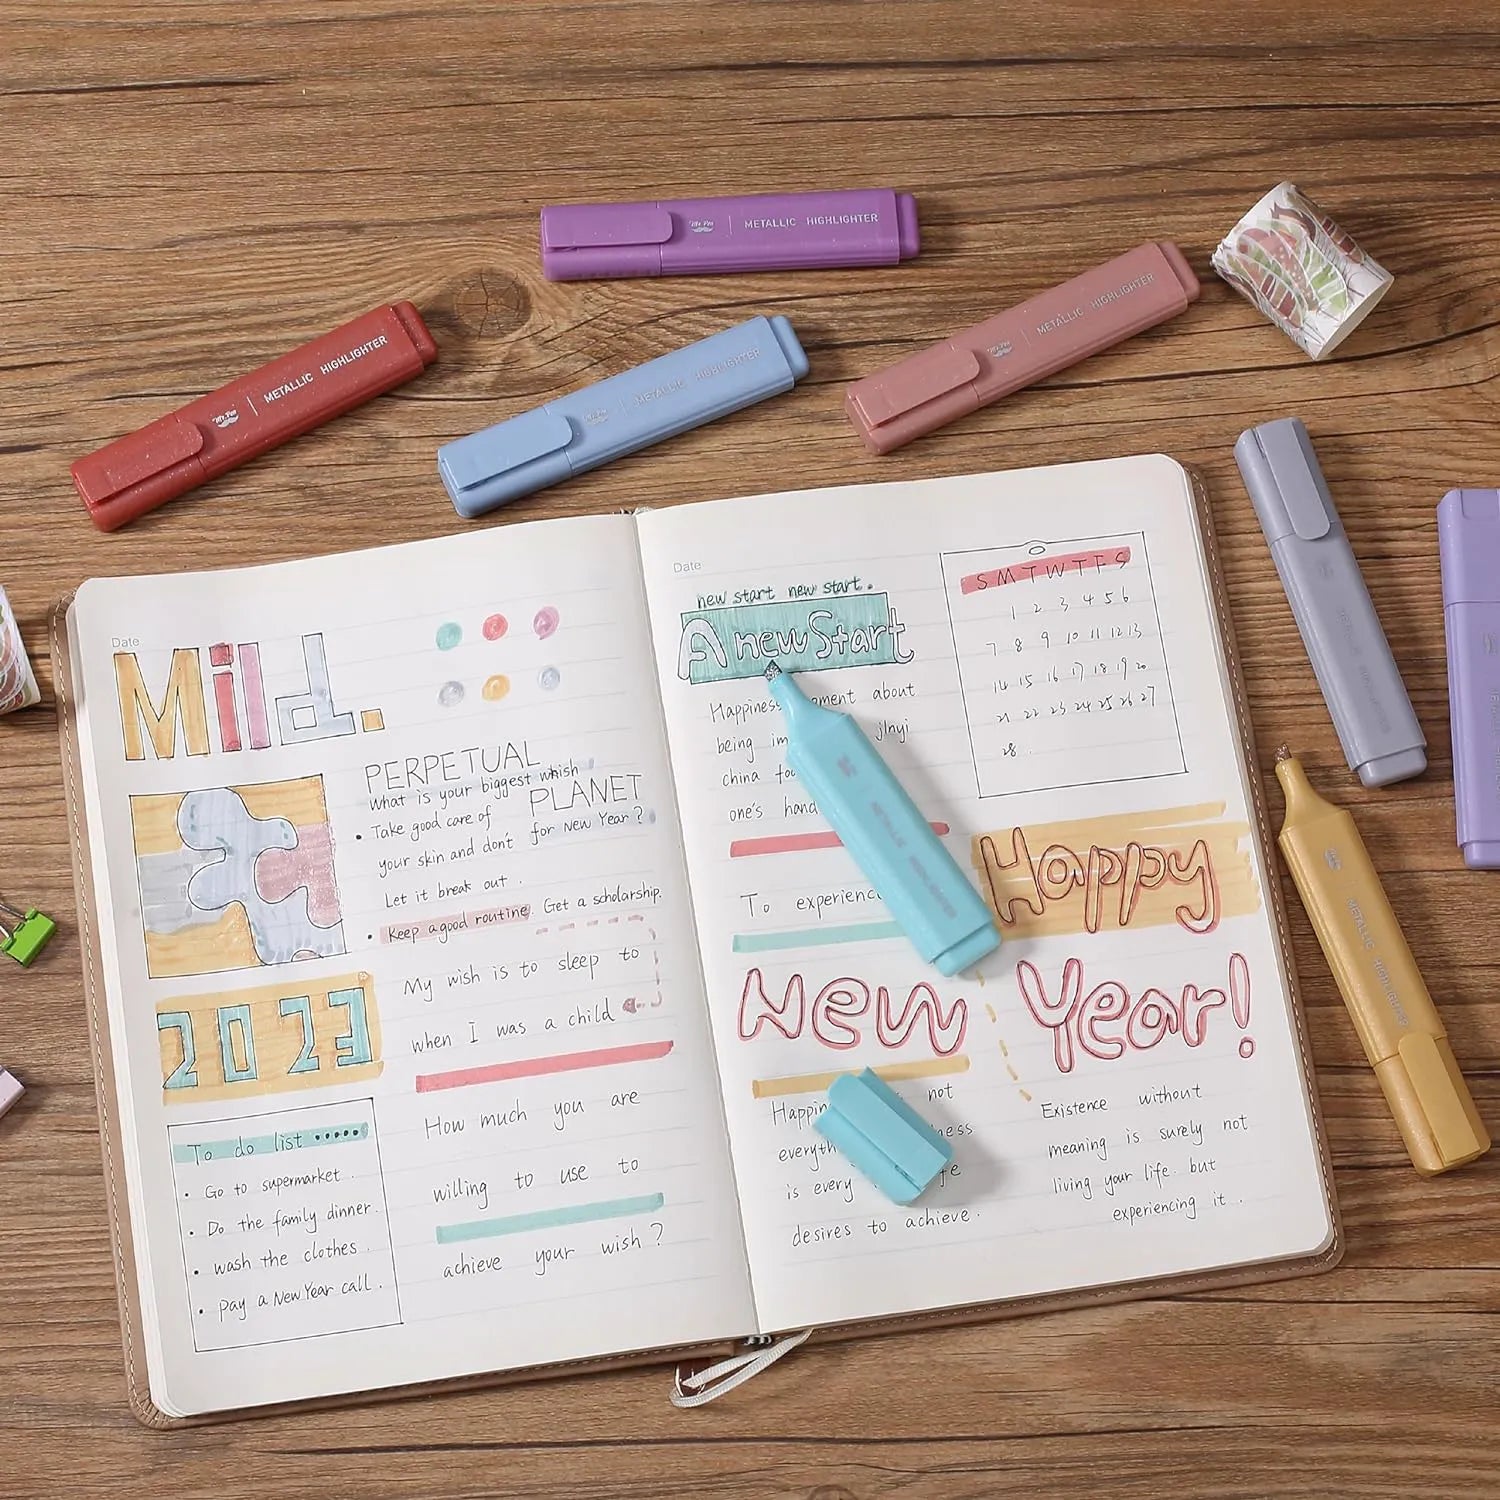 Mr. Pen METALLIC HIGHLIGHTER
Mr. Pen METALLIC HIGHLIGHTER
Mr. Pen METALLIC HIGHLIGHTER
Mr. Pen METALLIC HIGHLIGHTER
METALLIC HIGHLIGHTER
Date
Mild.
PERPETUAL
what is your biggest whish
PLANET
for New Year?
• Take good care of
your skin and don't
Let it break out.
• Keep a good routine. Get a scholarship.
My wish is to sleep to
when I was a child
2023
How much you are
willing to use to
achieve your wish?
To do list •••••
• Go to supermarket.
• Do the family dinner.
• wash the clothes.
• pay a New Year call.
Date
new start new start.
A new Start
Happiness ment about
being im jinyi
china
one's hand
To experience
S M T W T F S
1 2 3 4 5 6
7 8 9 10 11 12 13
14 15 16 17 18 19 20
21 22 23 24 25 26 27
28.
Happy
New Year!
not
everyth ness
is every fe
desires to achieve.
Existence without
meaning is surely not
living your life. but
experiencing it.